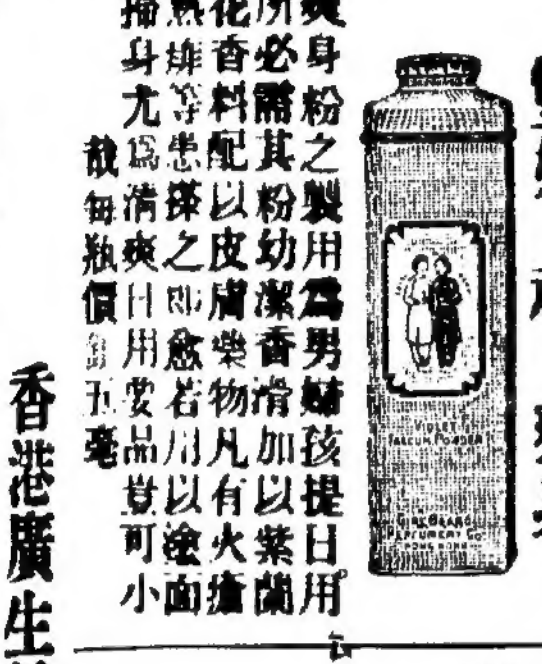 爽身粉之製用爲男婦孩提日用
所必需其粉幼潔香滑加以紫蘭
花香料配以皮膚藥物凡有火瘡
熱痱等患搽之即愈若用以塗面
掃身尤爲清爽日用要品豈可小
哉每瓶價銀五毫
VIOLET
TALCUM POWDER
PERFUMERY Co.
HONG KONG
香港廣生